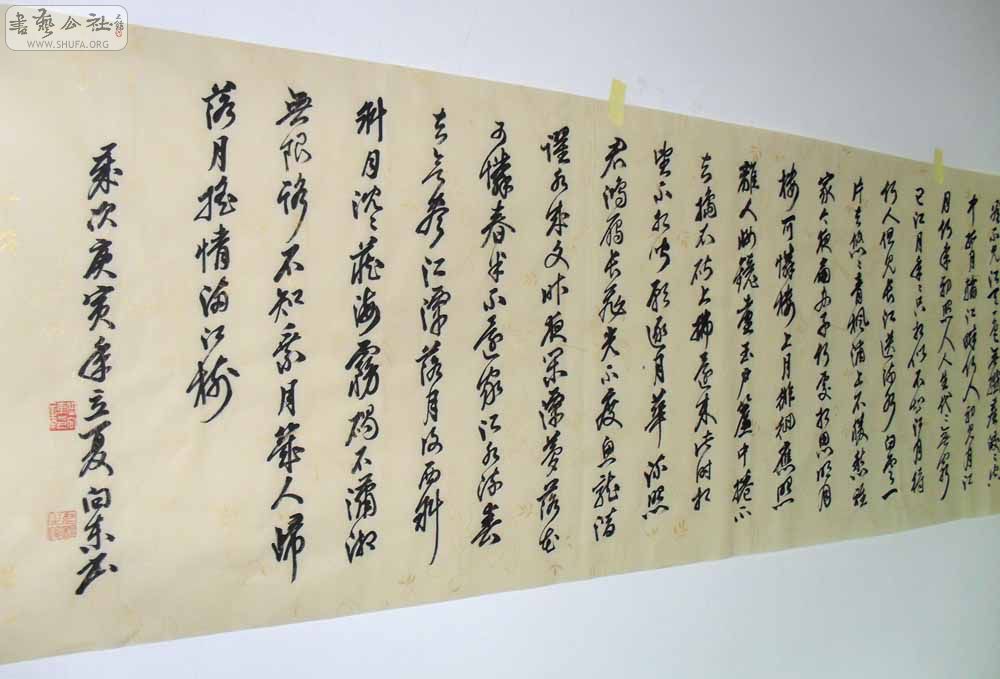 書藝公社
WWW.SHUFA.ORG
不見江天一色無纖塵皎皎空
中孤月輪江畔何人初見月江
月何年初照人人生代代無窮
已江月年年只相似不知江月待
何人但見長江送流水白雲一
片去悠悠青楓浦上不勝愁誰
家今夜扁舟子何處相思明月
樓可憐樓上月徘徊應照
離人妝鏡臺玉戶簾中捲不
去擣衣砧上拂還來此時相
望不相聞願逐月華流照
君鴻雁長飛光不度魚龍潛
躍水成文昨夜閑潭夢落花
可憐春半不還家江水流春
去欲盡江潭落月復西斜
斜月沈沈藏海霧碣石瀟湘
無限路不知乘月幾人歸
落月搖情滿江樹
歲次庚寅年立夏向東書